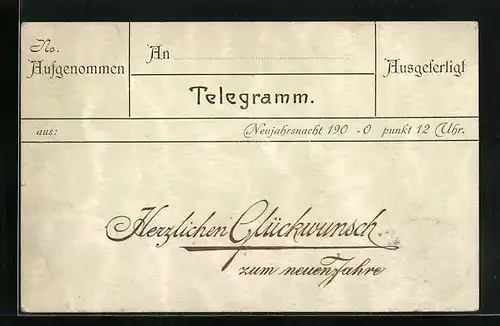 No.
Aufgenommen
An
Ausgefertigt
Telegramm.
aus:
Neujahrsnacht 190 - 0 punkt 12 Uhr.
Herzlichen Glückwunsch
zum neuen Jahre